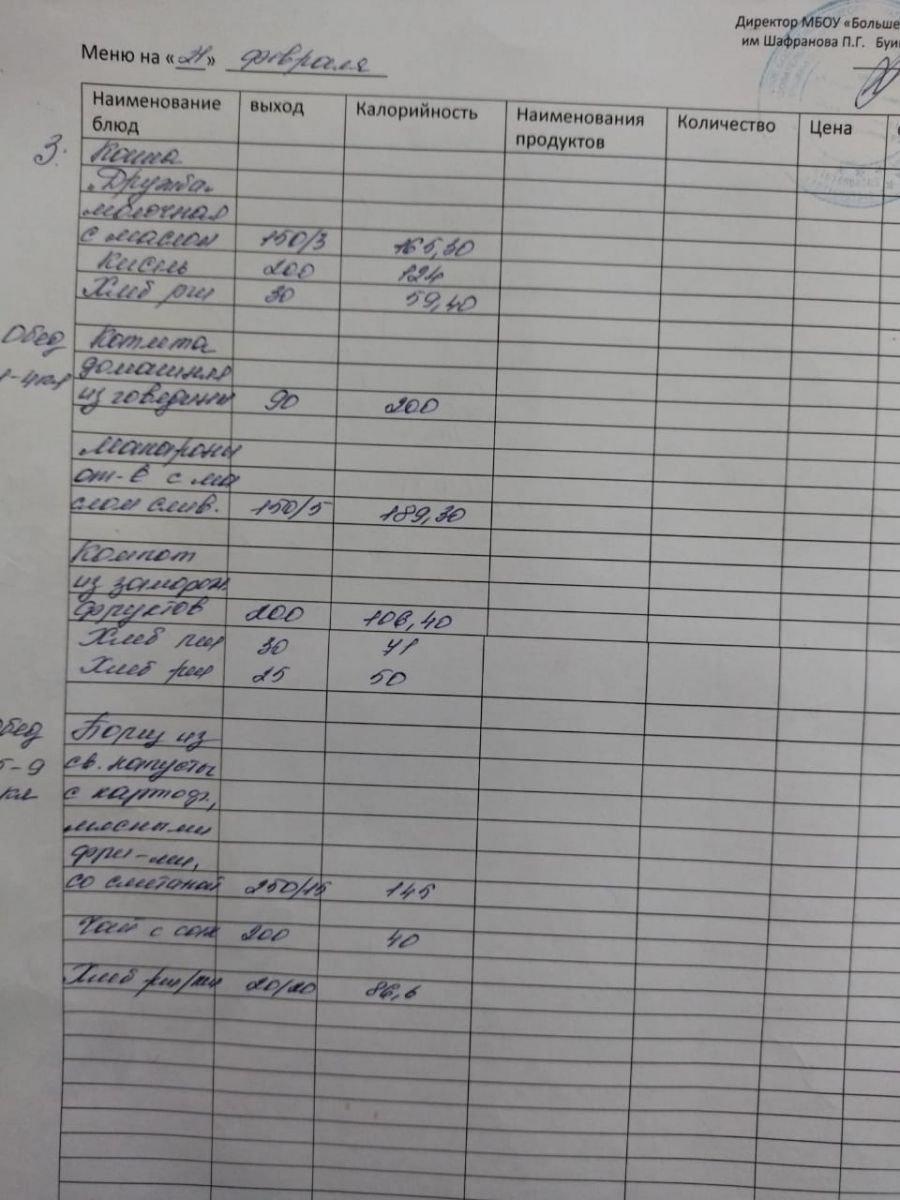 Директор МБОУ «Больше
им Шафранова П.Г. Буи
Меню на « 21 » февраля
Наименование блюд выход Калорийность Наименования продуктов Количество Цена
3.
Каша
"Дружба"
молочная
с маслом 150/3 165,30
Кисель 200 124
Хлеб рж 30 59,40
Обед Котлета
1-4кл домашняя
из говядины 90 200
Макароны
от-е с ма
слом слив. 150/5 189,30
Компот
из заморож.
фруктов 200 106,40
Хлеб пш 30 71
Хлеб рж 25 50
Обед Борщ из
5-9 св. капусты
кл с картоф.,
мясными
фри-ми,
со сметаной 250/15 145
Чай с сах 200 40
Хлеб рж/пш 20/20 86,6